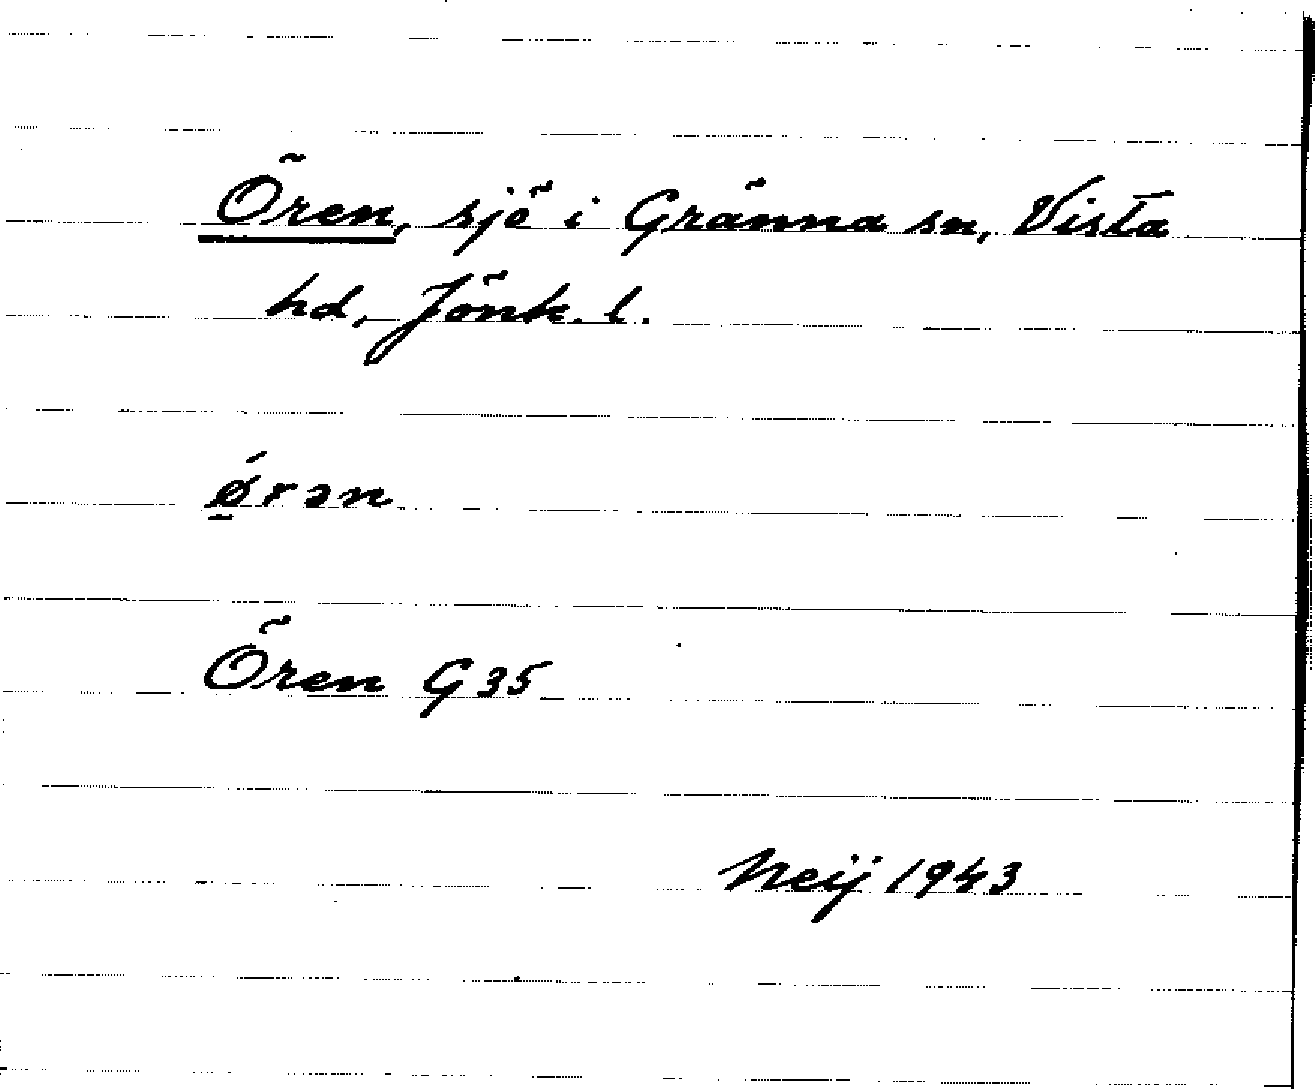 Ören, sjö i Gränna sn, Vista
hd, Jönk. l.
ǿ̱rən
Ören G 35
Neij 1943